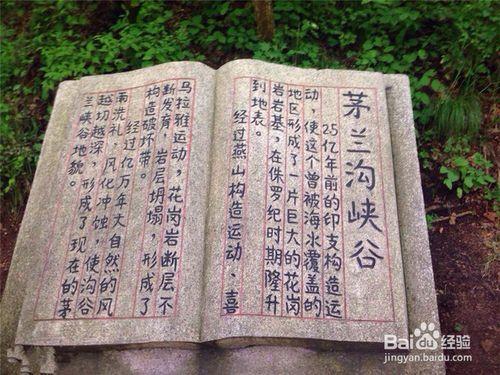 茅兰沟峡谷
25亿年前的印支构造运
动，使这个曾被海水覆盖的
地区形成了一片巨大的花岗
岩岩基，在侏罗纪时期隆升
到地表。
经过燕山构造运动、喜
马拉雅运动，花岗岩断层不
断发育，岩层坍塌，形成了
构造破坏带。
经过亿万年大自然的风
雨洗礼，风化冲蚀，使沟谷
越切越深，形成了现在的茅
兰峡谷地貌。
Baidu经验
jingyan.baidu.com